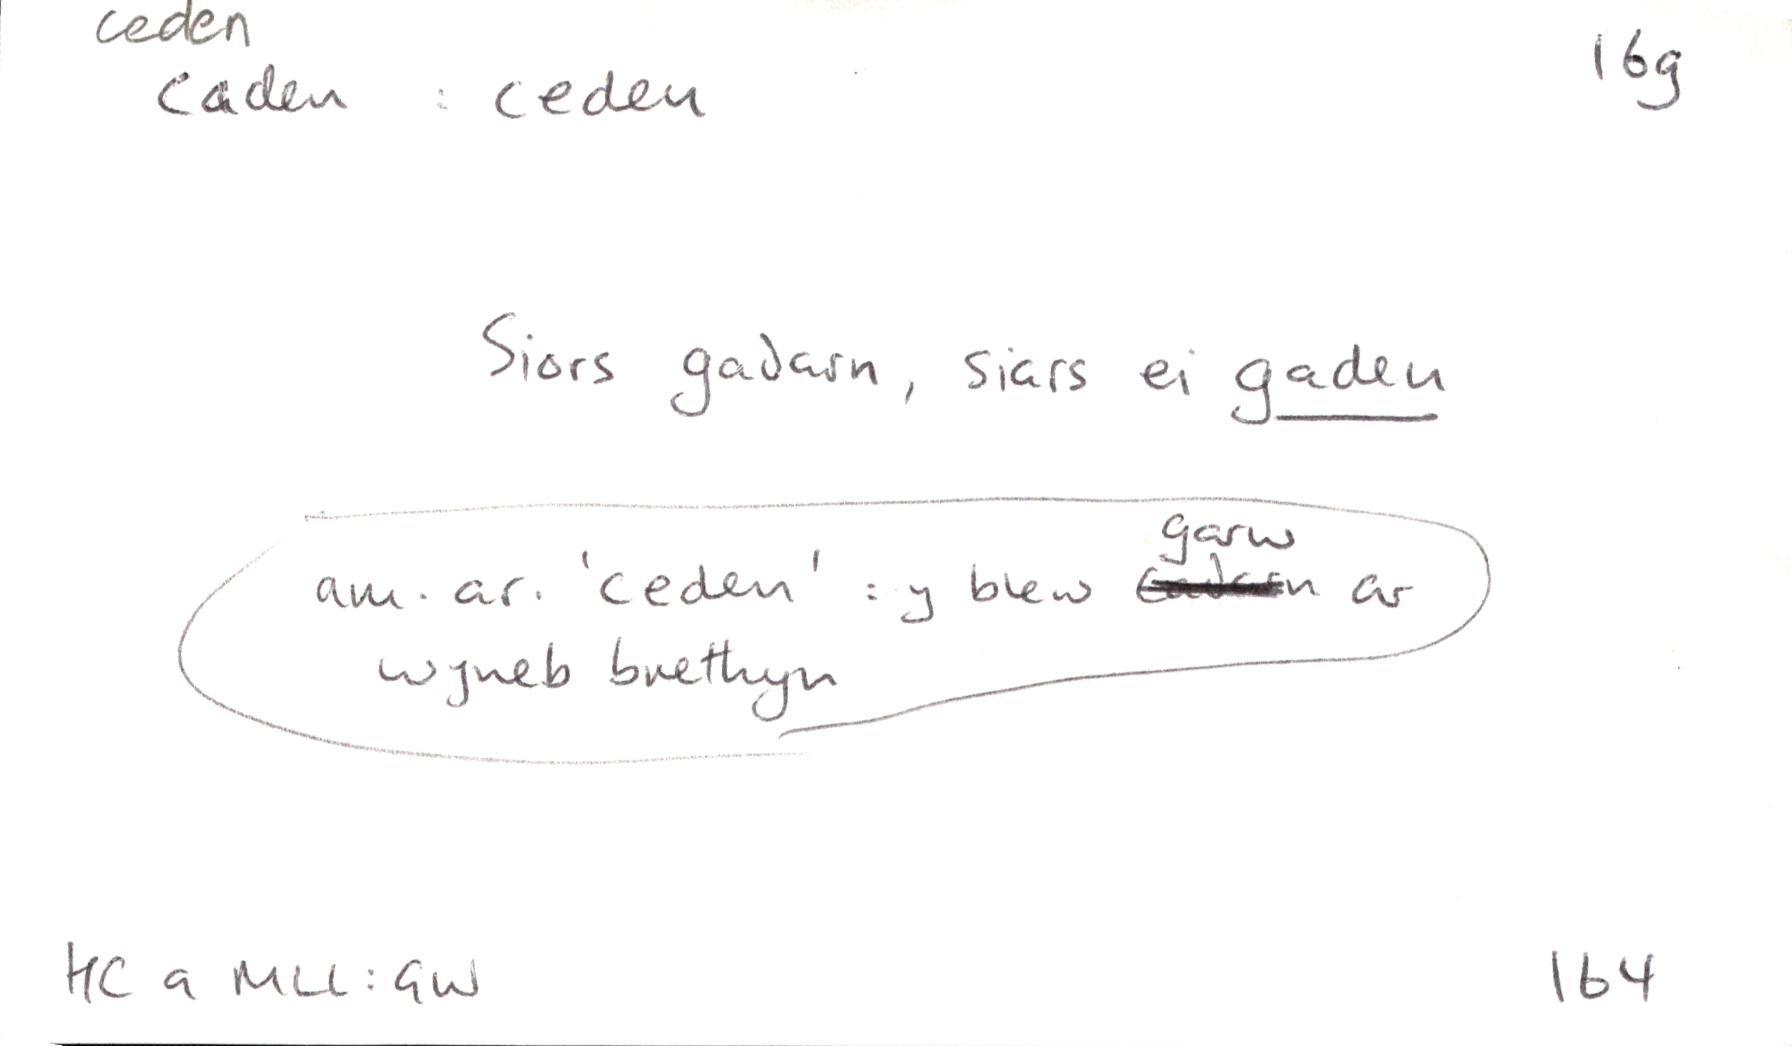 ceden
caden : ceden 16g
Siors gadarn, siars ei gaden
garw
am. ar. 'ceden' : y blew ar
wyneb brethyn
HC a MLl: GW 164